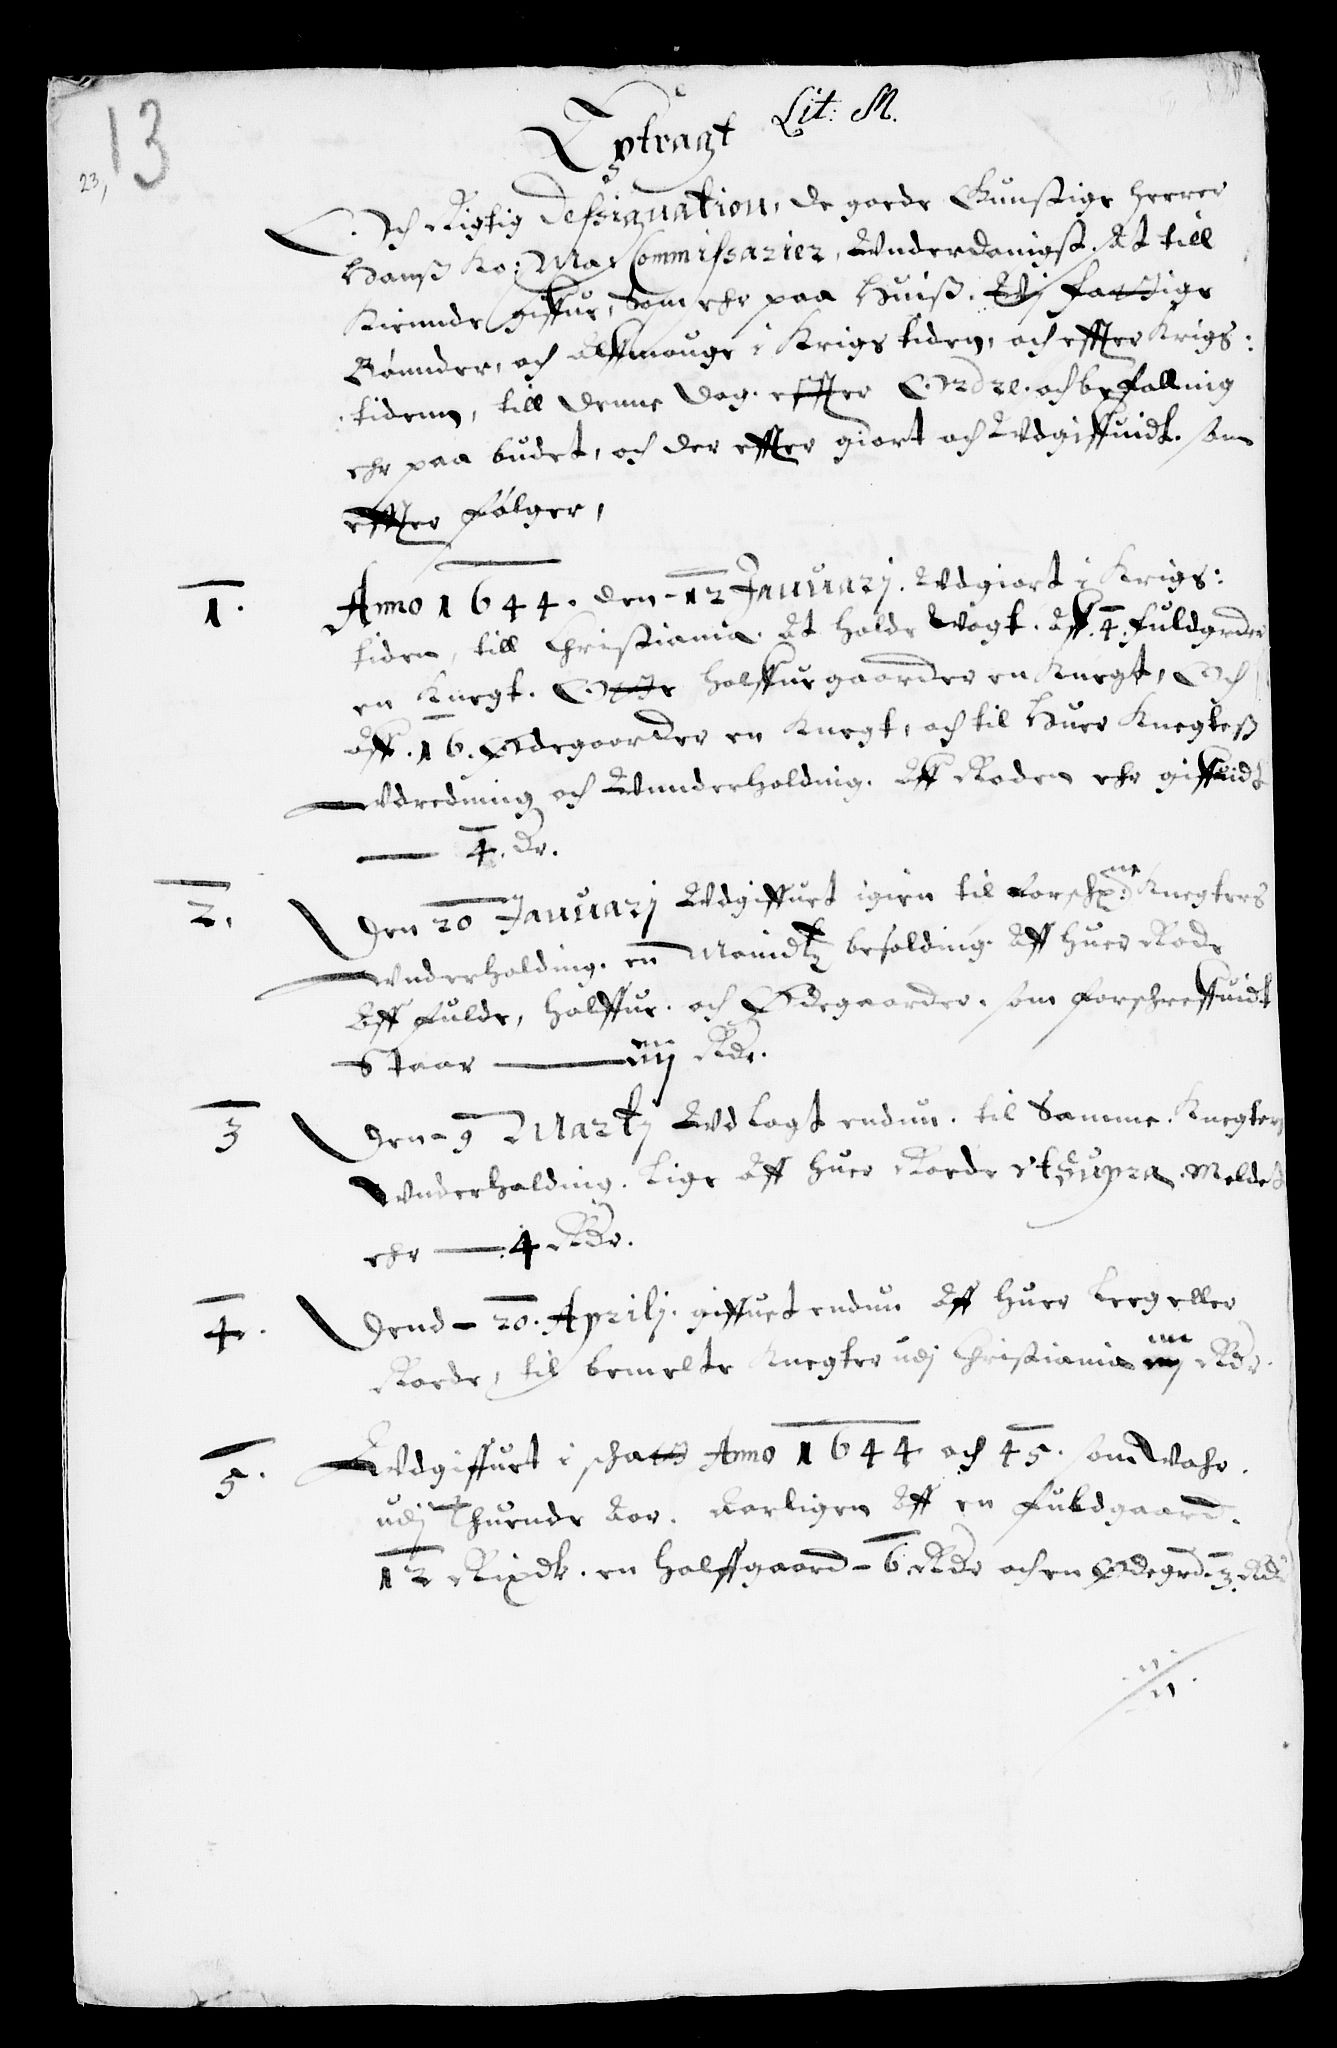 13
23,
Lit: M.
Extragt
Och Rigtig Dessignation, de goede Gunstige herrer
Hanß Ko: Ma: Commissarier, Wnderdanigst. At till
Kiennde giffue, Som ehr paa Huiß. Wj fattige
Bønnder, och Allmouge i Krigs tiden, och effter Krigs:
tidenn, till denne dag. effter Ordre. och befalling
ehr paa budet, och der effter giort och Wdgiffuidt. som
effter følger,
1.
Anno 1644. den 12 Januarj. Wdgiort i Krigs:
tiden, till Christiania. At holde Wagt. Aff. 4. fuldgrder
en Knegt. Otte halffuegaarder en Knegt, Och
Aff. 16. Ødegaarder en Knegt, och til Huer Knegteß
Wdredning och Wnnderholding. Aff Roden ehr giffuidt
4. Dr.
2.
Den 20 Januarj Wdgiffuet igien til forschr.ne Knegters
Wnderholding. en Maanidtz besolding. Aff huer Rode
Aff fulde, halffue. och Ødegaarder. som forschreffuidt
Staar iiij Rdr.
3
Den 9 Martj Wdlagt endnu. til Samme. Knegters
Wnderholding. lige Aff huer Roede vt Supra Meldet
ehr 4 Rdr.
4.
Dend 20. Aprilj. giffuet endnu Aff huer Leeg eller
Roede, til bemelte Knegter udj Christiania iiij Rdr.
5.
Wdgiffuet i schatt Anno 1644 och 45. som Wahr.
udj Thuende Aar. Aarligen Aff en fuldgaard.
12 Rixdr. en halffgaard 6 Rdr och en Ødegrd. 3 Rdr